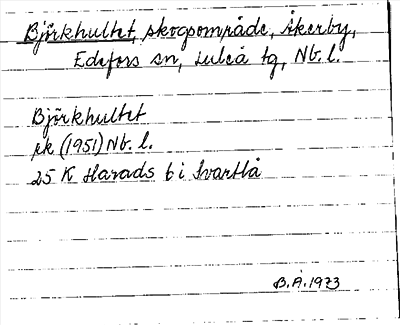 Björkhultet, skogsområde, Åkerby,
Edefors sn, Luleå tg, Nb. l.
Björkhultet
ek (1951) Nb. l.
25 K Harads b i Svartlå
B.Å. 1973